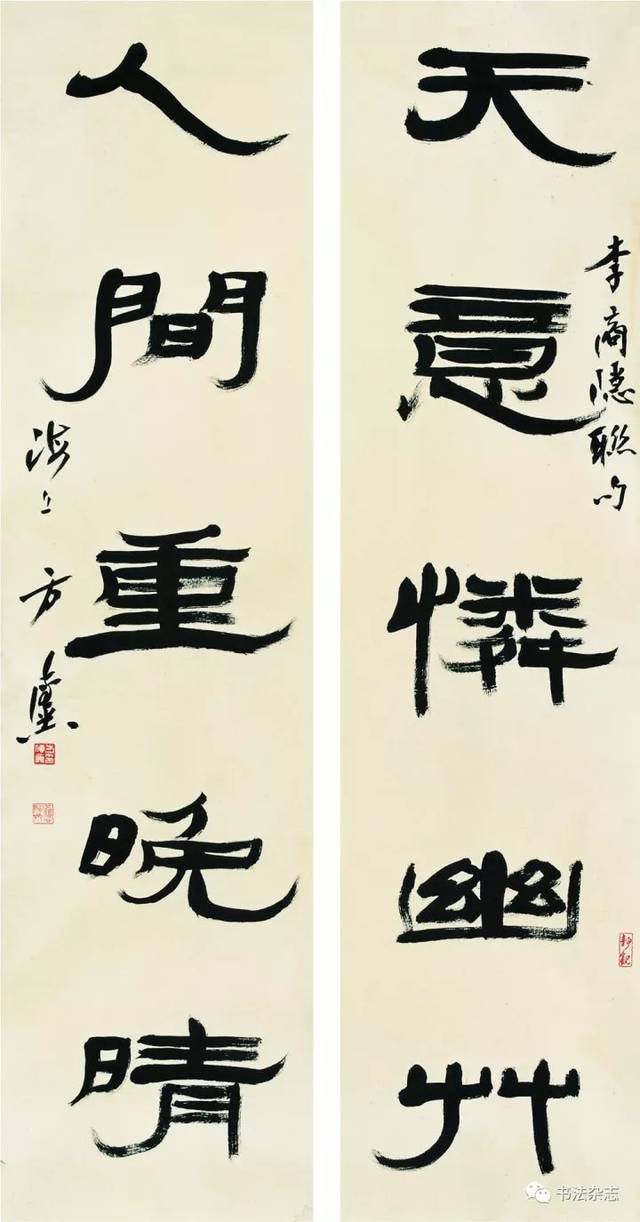 天意憐幽艸
李商隐聯句
人間重晚晴
海上方
书法杂志